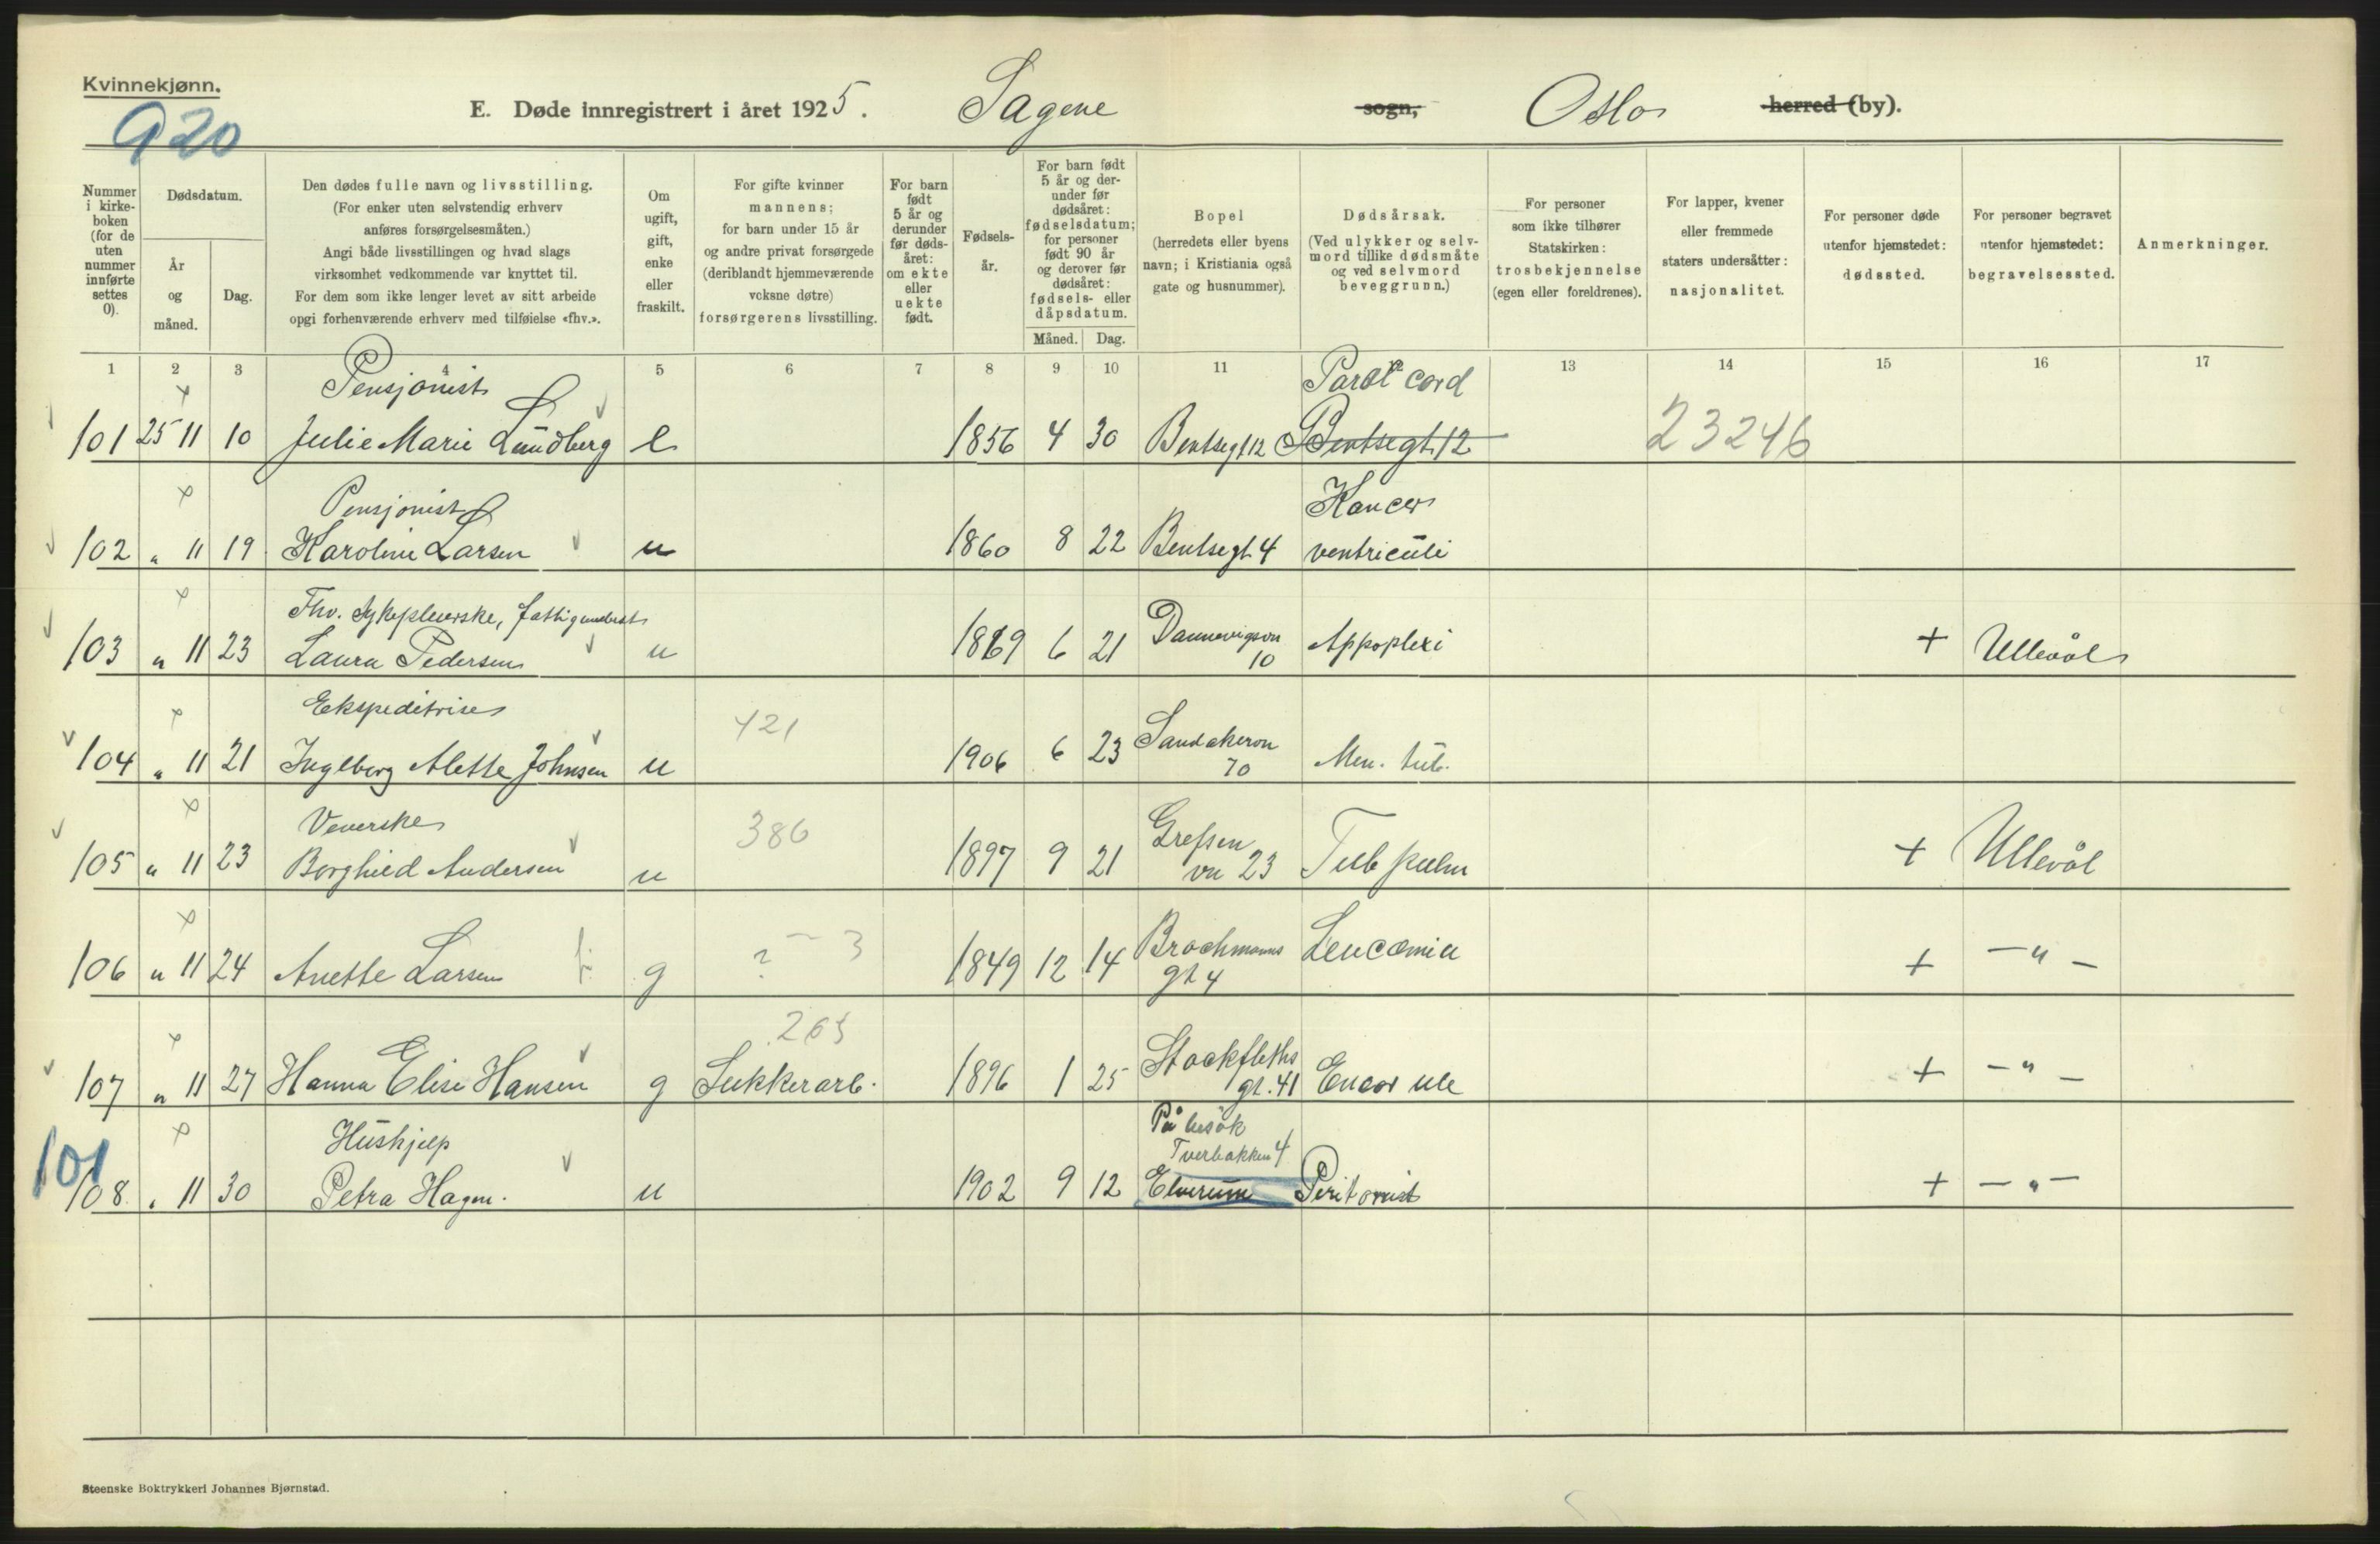 Kvinnekjønn.
920
E. Døde innregistrert i året 1925. Sagene sogn, Oslo herred (by).
Nummer i kirke-boken (for de uten nummer innførte settes 0).
Dødsdatum.
År og måned.
Dag.
Den dødes fulle navn og livsstilling.
(For enker uten selvstendig erhverv
anføres forsørgelsesmåten.)
Angi både livsstillingen og hvad slags
virksomhet vedkommende var knyttet til.
For dem som ikke lenger levet av sitt arbeide
opgi forhenværende erhverv med tilføielse «fhv.».
Om ugift, gift, enke eller fraskilt.
For gifte kvinner
mannens;
for barn under 15 år
og andre privat forsørgede
(deriblandt hjemmeværende
voksne døtre)
forsørgerens livsstilling.
For barn født 5 år og derunder før døds-året: om ekte eller uekte født.
Fødsels-år.
For barn født 5 år og der-under før dødsåret: fødselsdatum; for personer født 90 år og derover før dødsåret: fødsels- eller dåpsdatum.
Måned. Dag.
Bopel
(herredets eller byens
navn; i Kristiania også
gate og husnummer).
Dødsårsak.
(Ved ulykker og selv-
mord tillike dødsmåte
og ved selvmord
beveggrunn.)
For personer
som ikke tilhører
Statskirken:
trosbekjennelse
(egen eller foreldrenes).
For lapper, kvener
eller fremmede
staters undersåtter:
nasjonalitet.
For personer døde
utenfor hjemstedet:
dødssted.
For personer begravet
utenfor hjemstedet:
begravelsessted.
Anmerkninger.
1 2 3 4 5 6 7 8 9 10 11 12 13 14 15 16 17
Pensjonist Paral cord
101 25 11 10 Julie Marie Lundberg e 1856 4 30 Bentsegt 12 Bentsegt. 12 23246
Pensjonist Kancer
102 " 11 19 Karoline Larsen u 1860 8 22 Bentsegt. 4 ventriculi
Fhv. Sykepleierske, fattigunderst
103 " 11 23 Laura Pedersen u 1869 6 21 Dannevigsvn 10 Appoplexi + Ullevål
Ekspeditrise 421
104 " 11 21 Ingeborg Alette Johnsen u 1906 6 23 Sandakervn 70 Men. tub.
Veverske 386
105 " 11 23 Borghild Andersen u 1897 9 21 Grefsen vn 23 Tub pulm + Ullevål
106 " 11 24 Anette Larsen g ? 3 1849 12 14 Brochmanns gt 4 Leucæmia + — " —
263
107 " 11 27 Hanna Elise Hansen g Sukkerarb. 1896 1 25 Stockfleths gt. 41 + — " —
101 Hushjelp På besøk Tverbakken 4
108 " 11 30 Petra Hagen. u 1902 9 12 Elverum Peritonist + — " —
Steenske Boktrykkeri Johannes Bjørnstad.